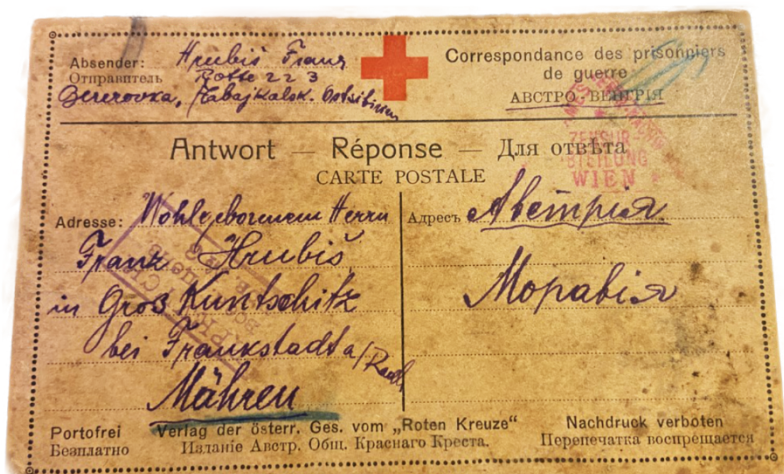 Absender: Hrubiš Franz
Отправитель Rotte 2 2 3
Berezovka, Zabajkalsk. Ostsibirien
Correspondance des prisonniers
de guerre
АВСТРО-ВЕНГРІЯ
Antwort — Réponse — Для отвѣта
CARTE POSTALE
ZENSUR
ABTEILUNG
WIEN
Adresse: Wohlgebornem Herrn
Franz Hrubiš
in Gros Kuntschitz
bei Frankstadt a/Radh.
Mähren
Адресъ Австрія
Моравія
Portofrei
Безплатно
Verlag der österr. Ges. vom „Roten Kreuze“
Изданіе Австр. Общ. Краснаго Креста.
Nachdruck verboten
Перепечатка воспрещается